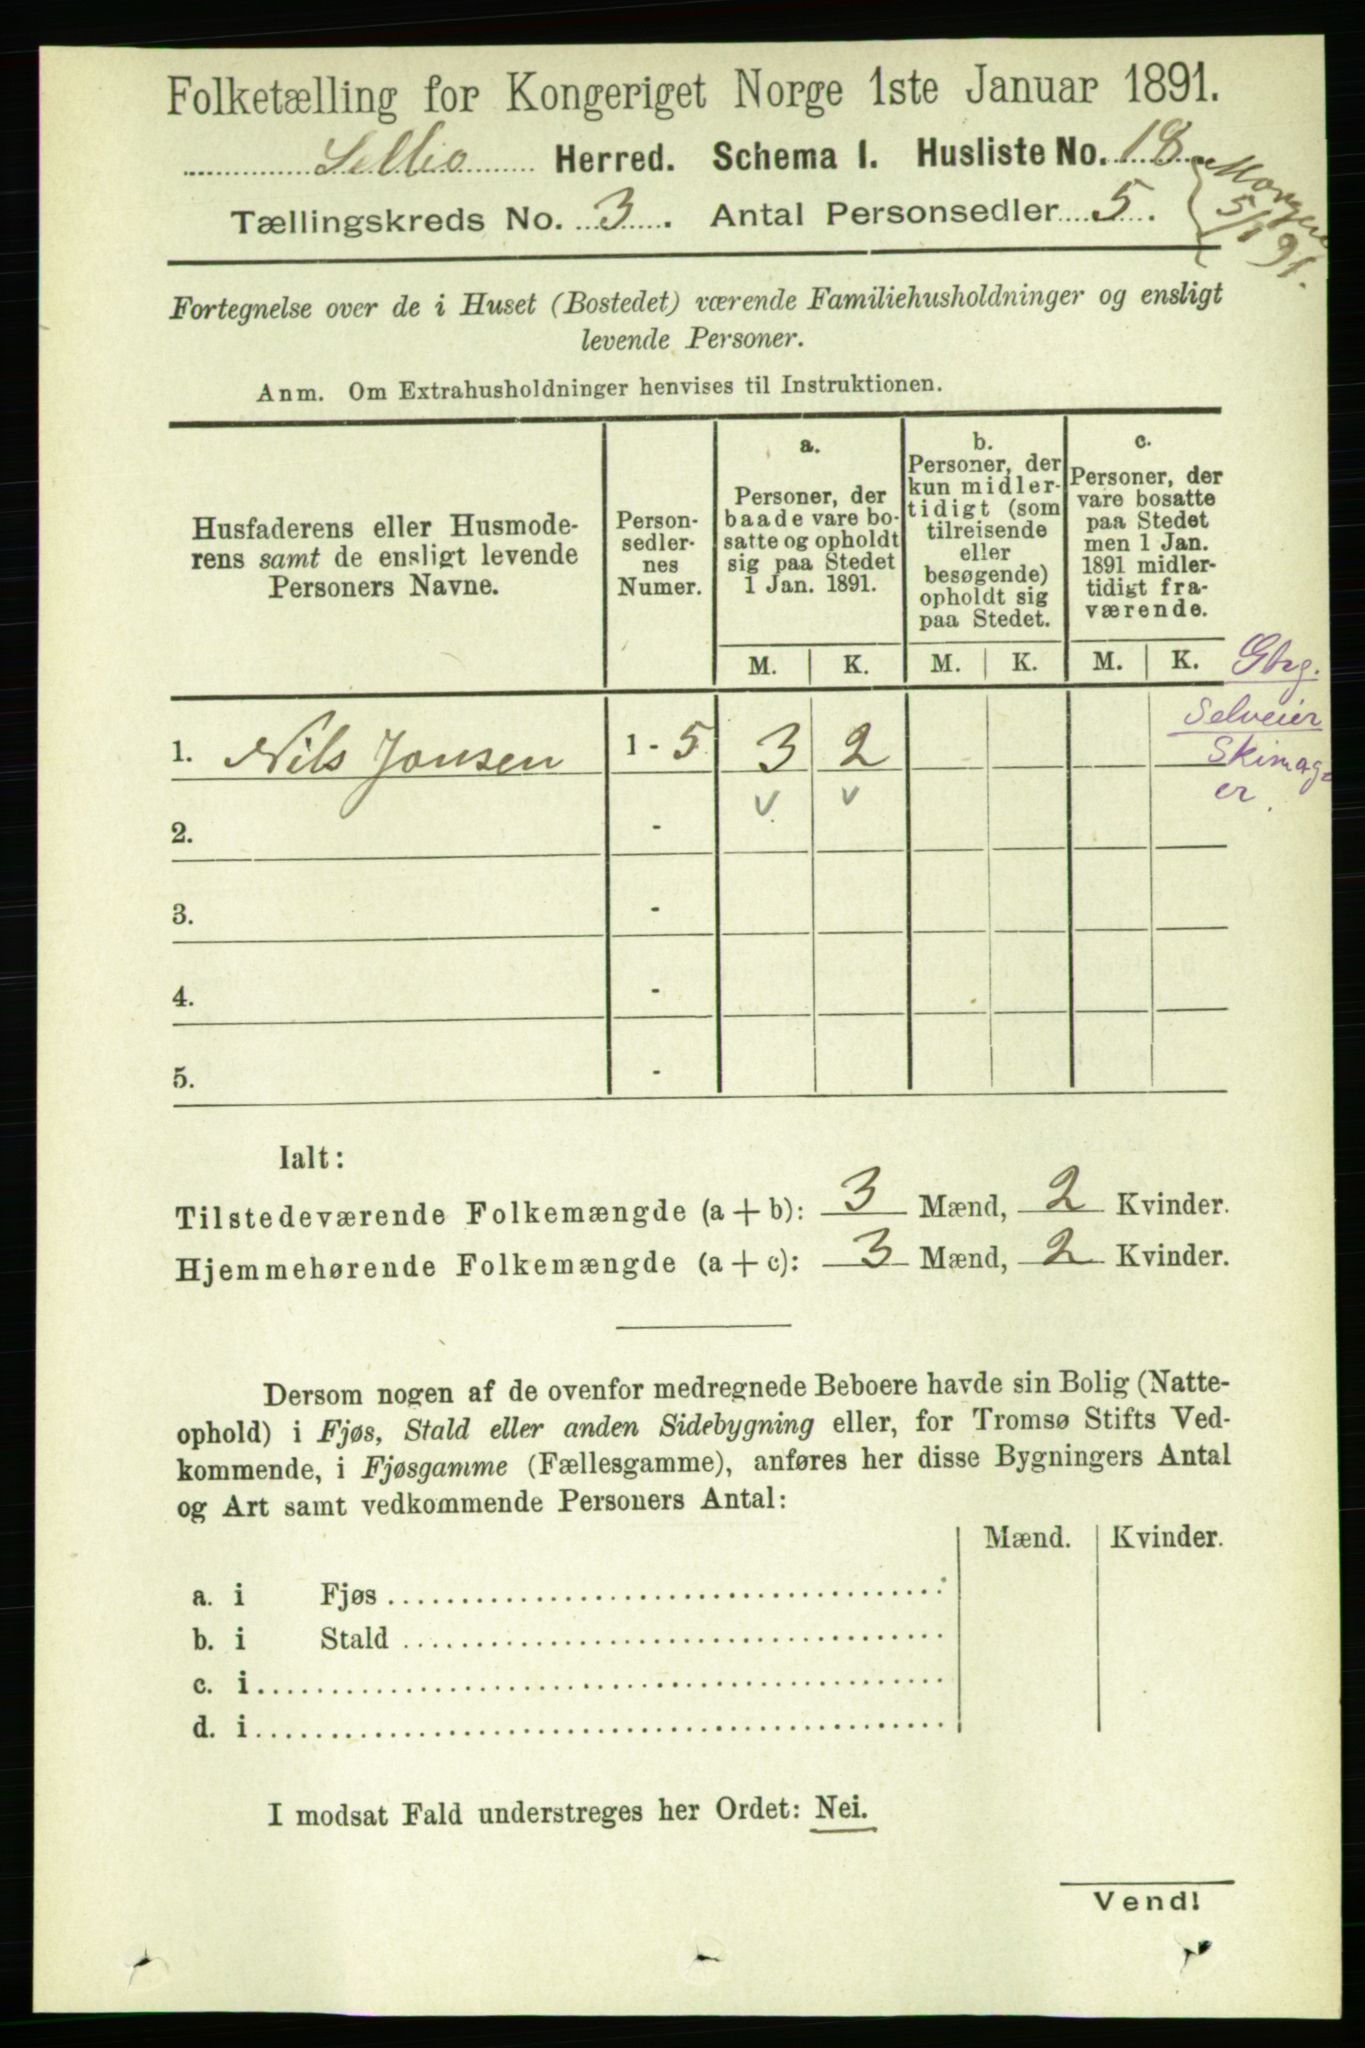 Folketælling for Kongeriget Norge 1ste Januar 1891.
Selbo Herred. Schema 1. Husliste No. 18
Tællingskreds No. 3. Antal Personsedler 5.
5/1 91.
Fortegnelse over de i Huset (Bostedet) værende Familiehusholdninger og ensligt
levende Personer.
Anm. Om Extrahusholdninger henvises til Instruktionen.
Husfaderens eller Husmode-
rens samt de ensligt levende
Personers Navne.
Person-
sedler-
nes
Numer.
a.
Personer, der
baade vare bo-
satte og opholdt
sig paa Stedet
1 Jan. 1891.
b.
Personer, der
kun midler-
tidigt (som
tilreisende
eller
besøgende)
opholdt sig
paa Stedet.
c.
Personer, der
vare bosatte
paa Stedet
men 1 Jan.
1891 midler-
tidigt fra-
værende.
M. K. M. K. M. K.
Gbrg.
Selveier
Skimag-
er.
1. Nils Jonsen 1 - 5 3 2
v v
2. -
3. -
4. -
5. -
Ialt:
Tilstedeværende Folkemængde (a + b): 3 Mænd, 2 Kvinder.
Hjemmehørende Folkemængde (a + c): 3 Mænd, 2 Kvinder.
Dersom nogen af de ovenfor medregnede Beboere havde sin Bolig (Natte-
ophold) i Fjøs, Stald eller anden Sidebygning eller, for Tromsø Stifts Ved-
kommende, i Fjøsgamme (Fællesgamme), anføres her disse Bygningers Antal
og Art samt vedkommende Personers Antal:
Mænd. Kvinder.
a. i Fjøs
b. i Stald
c. i
d. i
I modsat Fald understreges her Ordet: Nei.
Vend!